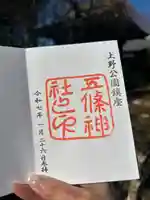 上野公園鎮座
五條神
社之印
令和七年一月二十六日奉拝